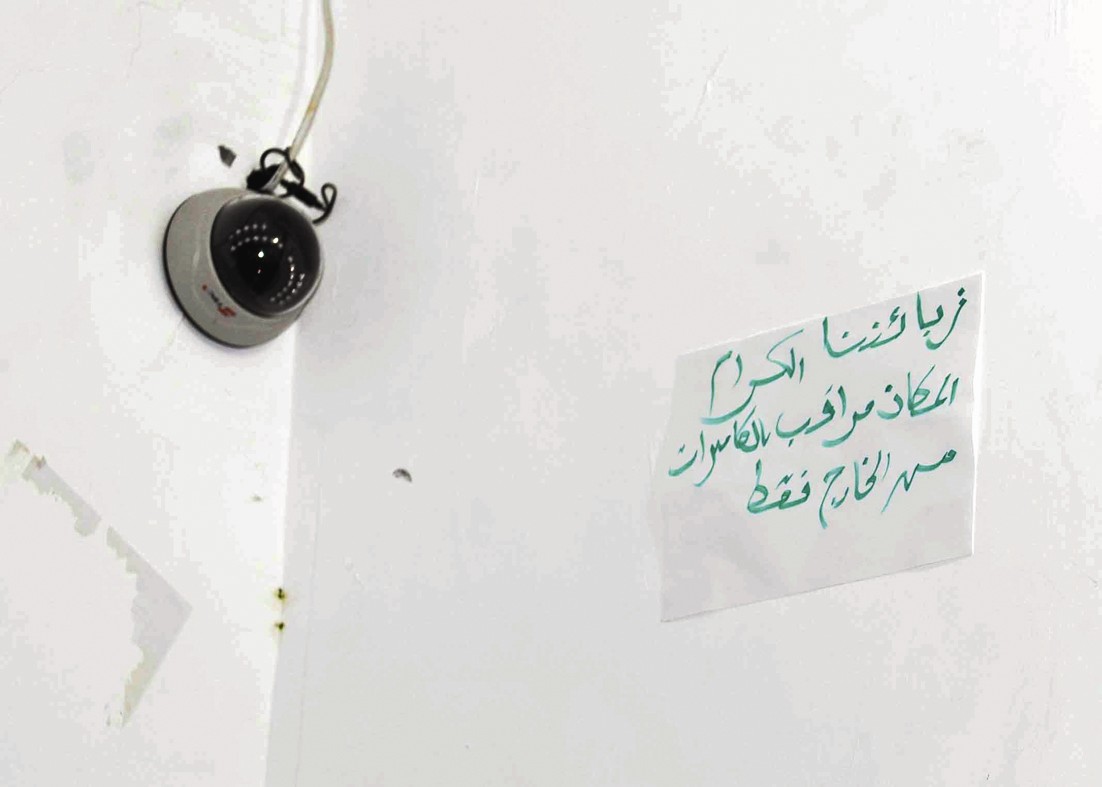 زبائننا الكرام
المكان مراقب بالكاميرات
من الخارج فقط